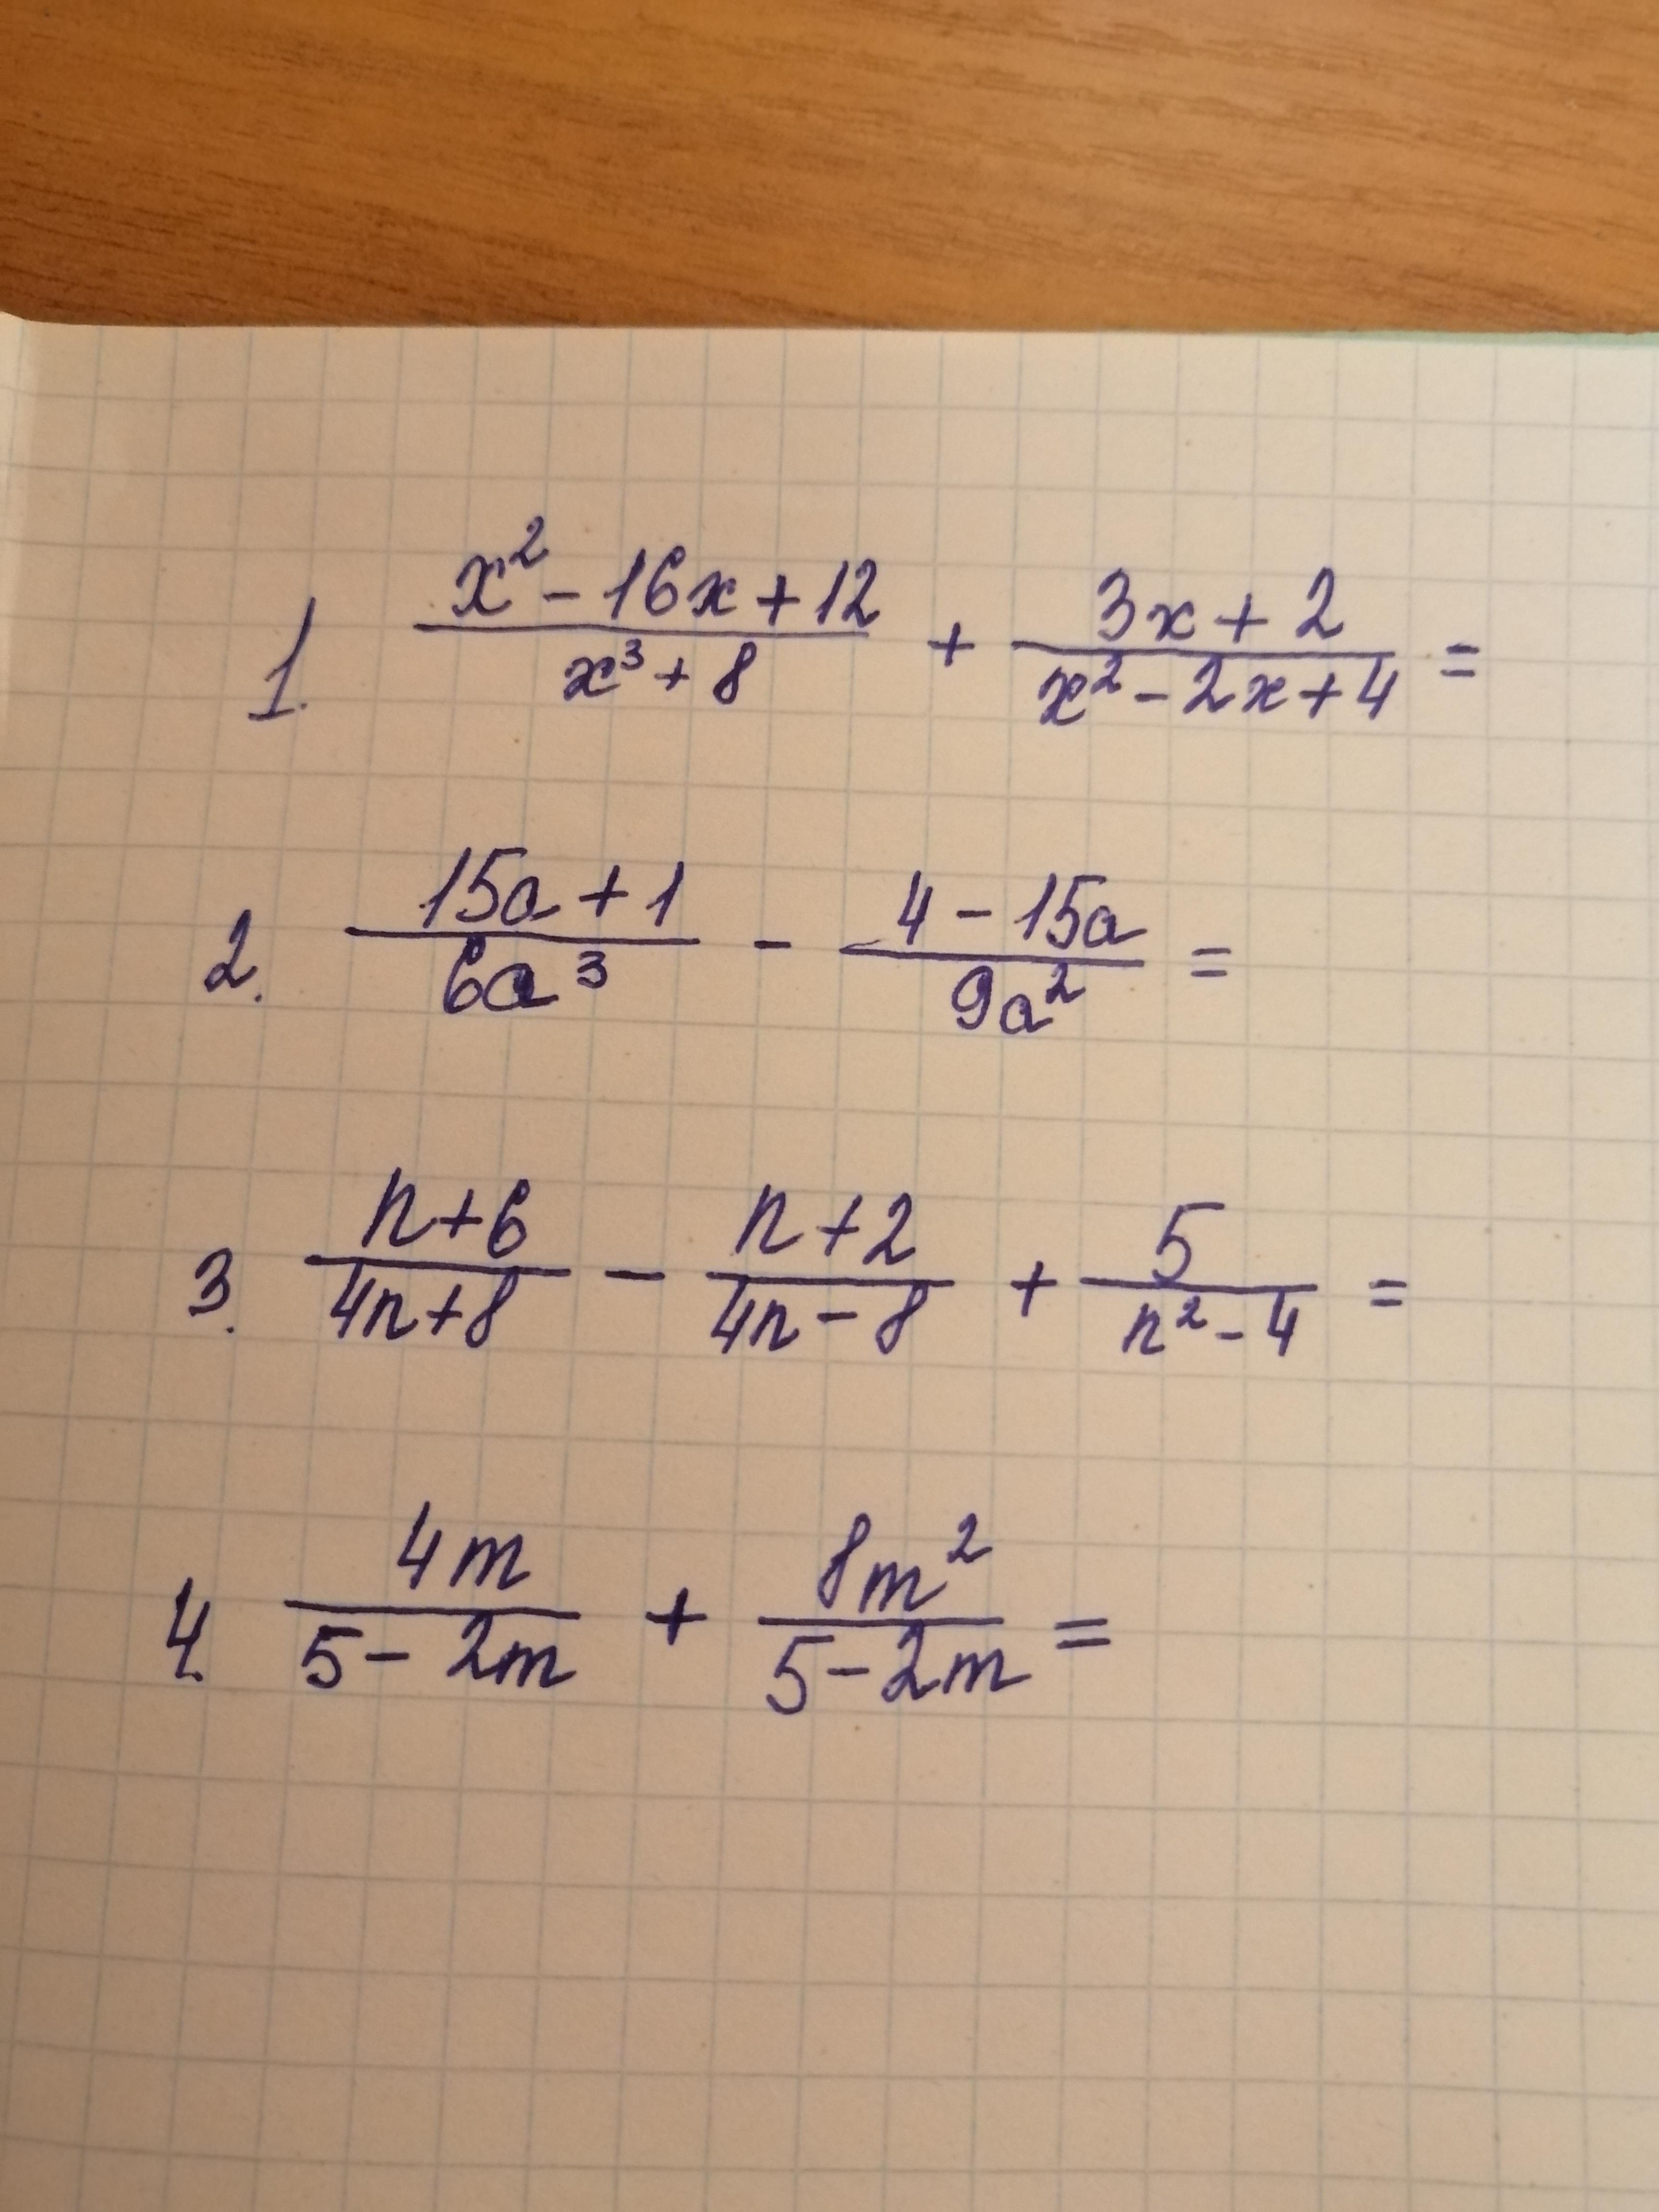 1. (x² - 16x + 12)/(x³ + 8) + (3x + 2)/(x² - 2x + 4) =
2. (15a + 1)/(6a³) - (4 - 15a)/(9a²) =
3. (n + 6)/(4n + 8) - (n + 2)/(4n - 8) + 5/(n² - 4) =
4. 4m/(5 - 2m) + 8m²/(5 - 2m) =